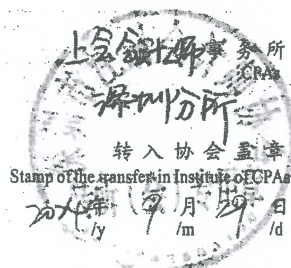 上会会计师事务所
CPAs
深圳分所
转入协会盖章
Stamp of the transfer-in Institute of CPAs
年 月 日
/y /m /d